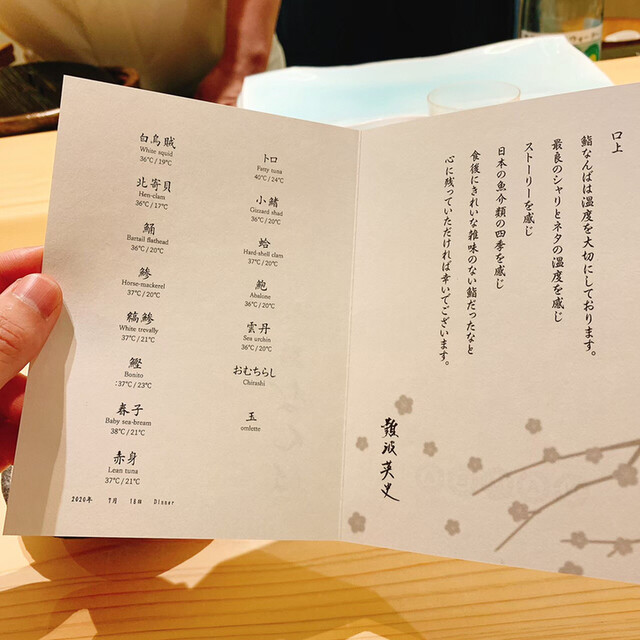 白烏賊
White squid
36℃ / 19℃
北寄貝
Hen-clam
36℃ / 17℃
鯒
Bartail flathead
36℃ / 20℃
鯵
Horse-mackerel
37℃ / 20℃
縞鯵
White trevally
37℃ / 21℃
鰹
Bonito
:37℃ / 23℃
春子
Baby sea-bream
38℃ / 21℃
赤身
Lean tuna
37℃ / 21℃
2020年 7月 18日 Dinner
トロ
Fatty tuna
40℃ / 24℃
小鰭
Gizzard shad
36℃ / 20℃
蛤
Hard-shell clam
37℃ / 20℃
鮑
Abalone
36℃ / 20℃
雲丹
Sea urchin
36℃ / 20℃
おむちらし
Chirashi
玉
omlette
口上
鮨なんばは温度を大切にしております。
最良のシャリとネタの温度を感じ
ストーリーを感じ
日本の魚介類の四季を感じ
食後にきれいな雑味のない鮨だったなと
心に残っていただければ幸いでございます。
難波英史